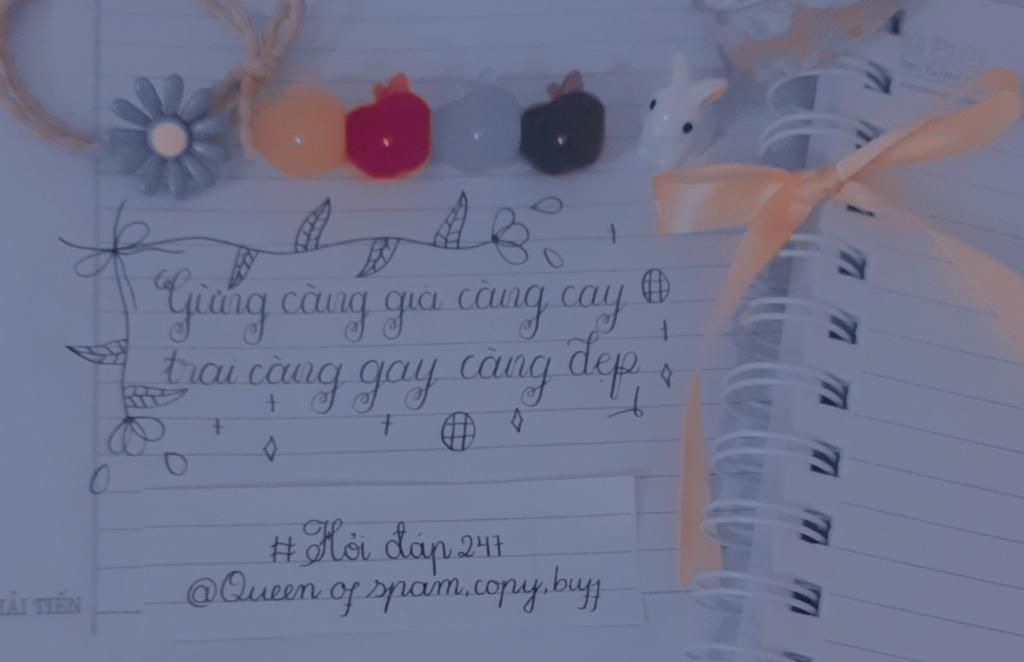 Gừng càng già càng cay
trai càng gay càng đẹp
#Hỏi đáp 247
@Queen of spam.copy.buff
ẢI TIẾN